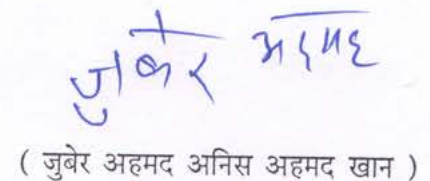 जुबेर अहमद
( जुबेर अहमद अनिस अहमद खान )